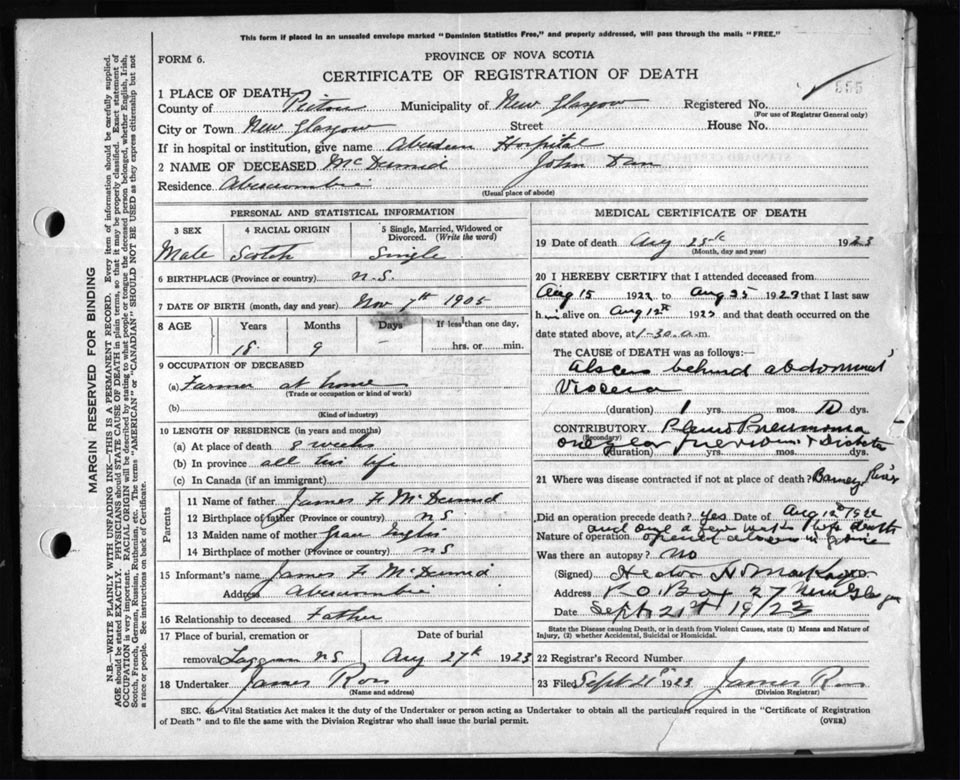 This form if placed in an unsealed envelope marked "Dominion Statistics Free," and properly addressed, will pass through the mails "FREE."
FORM 6.
PROVINCE OF NOVA SCOTIA
CERTIFICATE OF REGISTRATION OF DEATH
555
1 PLACE OF DEATH
County of Pictou Municipality of New Glasgow Registered No.
(For use of Registrar General only)
City or Town New Glasgow Street House No.
If in hospital or institution, give name Aberdeen Hospital
2 NAME OF DECEASED McDermid John Dan
Residence Abercrombie
(Usual place of abode)
MARGIN RESERVED FOR BINDING
N.B.—WRITE PLAINLY WITH UNFADING INK—THIS IS A PERMANENT RECORD. Every item of information should be carefully supplied.
AGE should be stated EXACTLY. PHYSICIANS should STATE CAUSE OF DEATH in plain terms, so that it may be properly classified. Exact statement of
OCCUPATION is very important. RACIAL ORIGIN will be described by stating to what people or tongue the deceased person belonged, whether English, Irish,
Scotch, French, German, Russian, Ruthenian, etc. The terms "AMERICAN" or "CANADIAN" SHOULD NOT BE USED as they express citizenship but not
a race or people. See instructions on back of Certificate.
PERSONAL AND STATISTICAL INFORMATION
3 SEX 4 RACIAL ORIGIN 5 Single, Married, Widowed or
Divorced. (Write the word)
Male Scotch Single
6 BIRTHPLACE (Province or country) N.S.
7 DATE OF BIRTH (month, day and year) Nov 7th 1905
8 AGE Years Months Days If less than one day,
18 9 – hrs. or min.
9 OCCUPATION OF DECEASED
(a) Farmer at home
(Trade or occupation or kind of work)
(b)
(Kind of industry)
10 LENGTH OF RESIDENCE (in years and months)
(a) At place of death 8 weeks
(b) In province all his life
(c) In Canada (if an immigrant)
Parents
11 Name of father James F McDermid
12 Birthplace of father (Province or country) NS
13 Maiden name of mother Jean
14 Birthplace of mother (Province or country) NS
15 Informant's name James F McDermid
Address Abercrombie
16 Relationship to deceased Father
17 Place of burial, cremation or Date of burial
removal Laggan NS Aug 27th 1923
18 Undertaker James Ross
(Name and address)
MEDICAL CERTIFICATE OF DEATH
19 Date of death Aug 25th 1923
(Month, day and year)
20 I HEREBY CERTIFY that I attended deceased from
Aug 15 1922 to Aug 25 1923 that I last saw
him alive on Aug 12th 1923 and that death occurred on the
date stated above, at 1-30 a.m.
The CAUSE of DEATH was as follows:
Abscess behind abdominal
Viscera
(duration) 1 yrs. mos. 10 dys.
CONTRIBUTORY Pleuro Pneumonia
(Secondary)
one year previous
(duration) yrs. mos. dys.
21 Where was disease contracted if not at place of death? Barney River
Did an operation precede death? Yes Date of Aug 12th 1922
and one a few before death
Nature of operation opened abscess in
Was there an autopsy? No
(Signed) Hector H. MacKay M.D.
Address P.O. Box 27 New Glasgow
Date Sept 21st 1923
State the Disease causing Death, or in death from Violent Causes, state (1) Means and Nature of
Injury, (2) whether Accidental, Suicidal or Homicidal.
22 Registrar's Record Number
23 Filed Sept 21st 1923 James Ross
(Division Registrar)
SEC. 46 Vital Statistics Act makes it the duty of the Undertaker or person acting as Undertaker to obtain all the particulars required in the "Certificate of Registration
of Death" and to file the same with the Division Registrar who shall issue the burial permit. (OVER)